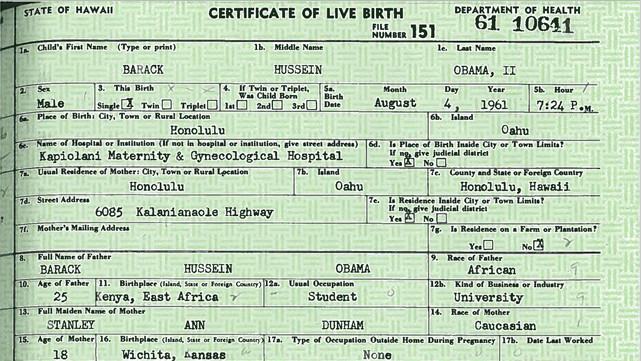 STATE OF HAWAII CERTIFICATE OF LIVE BIRTH DEPARTMENT OF HEALTH
FILE NUMBER 151 61 10641
1a. Child's First Name (Type or print) 1b. Middle Name 1c. Last Name
BARACK HUSSEIN OBAMA, II
2. Sex 3. This Birth 4. If Twin or Triplet, Was Child Born 5a. Birth Date Month Day Year 5b. Hour
Male Single X Twin Triplet 1st 2nd 3rd August 4, 1961 7:24 P.M.
6a. Place of Birth: City, Town or Rural Location 6b. Island
Honolulu Oahu
6c. Name of Hospital or Institution (If not in hospital or institution, give street address) 6d. Is Place of Birth Inside City or Town Limits? If no, give judicial district
Kapiolani Maternity & Gynecological Hospital Yes X No
7a. Usual Residence of Mother: City, Town or Rural Location 7b. Island 7c. County and State or Foreign Country
Honolulu Oahu Honolulu, Hawaii
7d. Street Address 7e. Is Residence Inside City or Town Limits? If no, give judicial district
6085 Kalanianaole Highway Yes X No
7f. Mother's Mailing Address 7g. Is Residence on a Farm or Plantation?
Yes No X
8. Full Name of Father 9. Race of Father
BARACK HUSSEIN OBAMA African
10. Age of Father 11. Birthplace (Island, State or Foreign Country) 12a. Usual Occupation 12b. Kind of Business or Industry
25 Kenya, East Africa Student University
13. Full Maiden Name of Mother 14. Race of Mother
STANLEY ANN DUNHAM Caucasian
15. Age of Mother 16. Birthplace (Island, State or Foreign Country) 17a. Type of Occupation Outside Home During Pregnancy 17b. Date Last Worked
18 Wichita, Kansas None